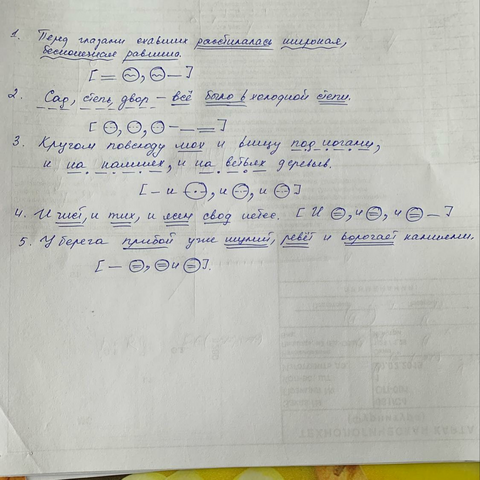 1. Перед глазами ехавших расстилалась широкая,
бесконечная равнина.
[ = ~, ~ – ]
2. Сад, степь, двор – всё было в холодной степи.
[ О, О, О – – = ]
3. Кругом повсюду мох и внизу под ногами,
и на камнях, и на ветвях деревьев.
[ – и О, и О, и О ]
4. И чист, и тих, и ясен свод небес. [ И =, и =, и = – ]
5. У берега прибой уже шумит, ревёт и ворочает камнями.
[ – =, = и = ].